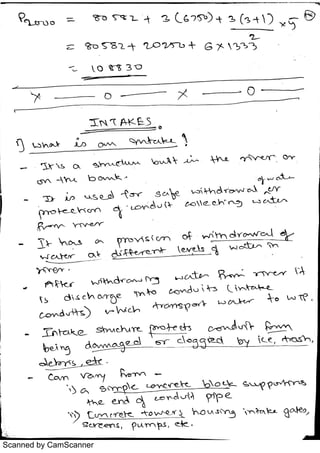 P2000 = 80582 + 3(6750) + 3(3+1) x5
2
= 80582 + 20250 + 6 x 1333
= 108830
x — o — x — o —
INTAKES.
1) What is an intake?
- It is a structure built in the river or
on the bank.
- It is used for safe withdrawal of water or
protection of conduit collecting water
from river
- It has a provision of withdrawal of
water at different levels of water in
river.
- After withdrawing water from river it
is discharge into conduits (intake
conduits) which transport water to WTP.
- Intake structure protects conduit from
being damaged or clogged by ice, trash,
debris, etc.
- Can vary from -
i) a simple concrete block supporting
the end of conduit pipe
ii) Concrete towers housing intake gates,
screens, pumps, etc.
Scanned by CamScanner